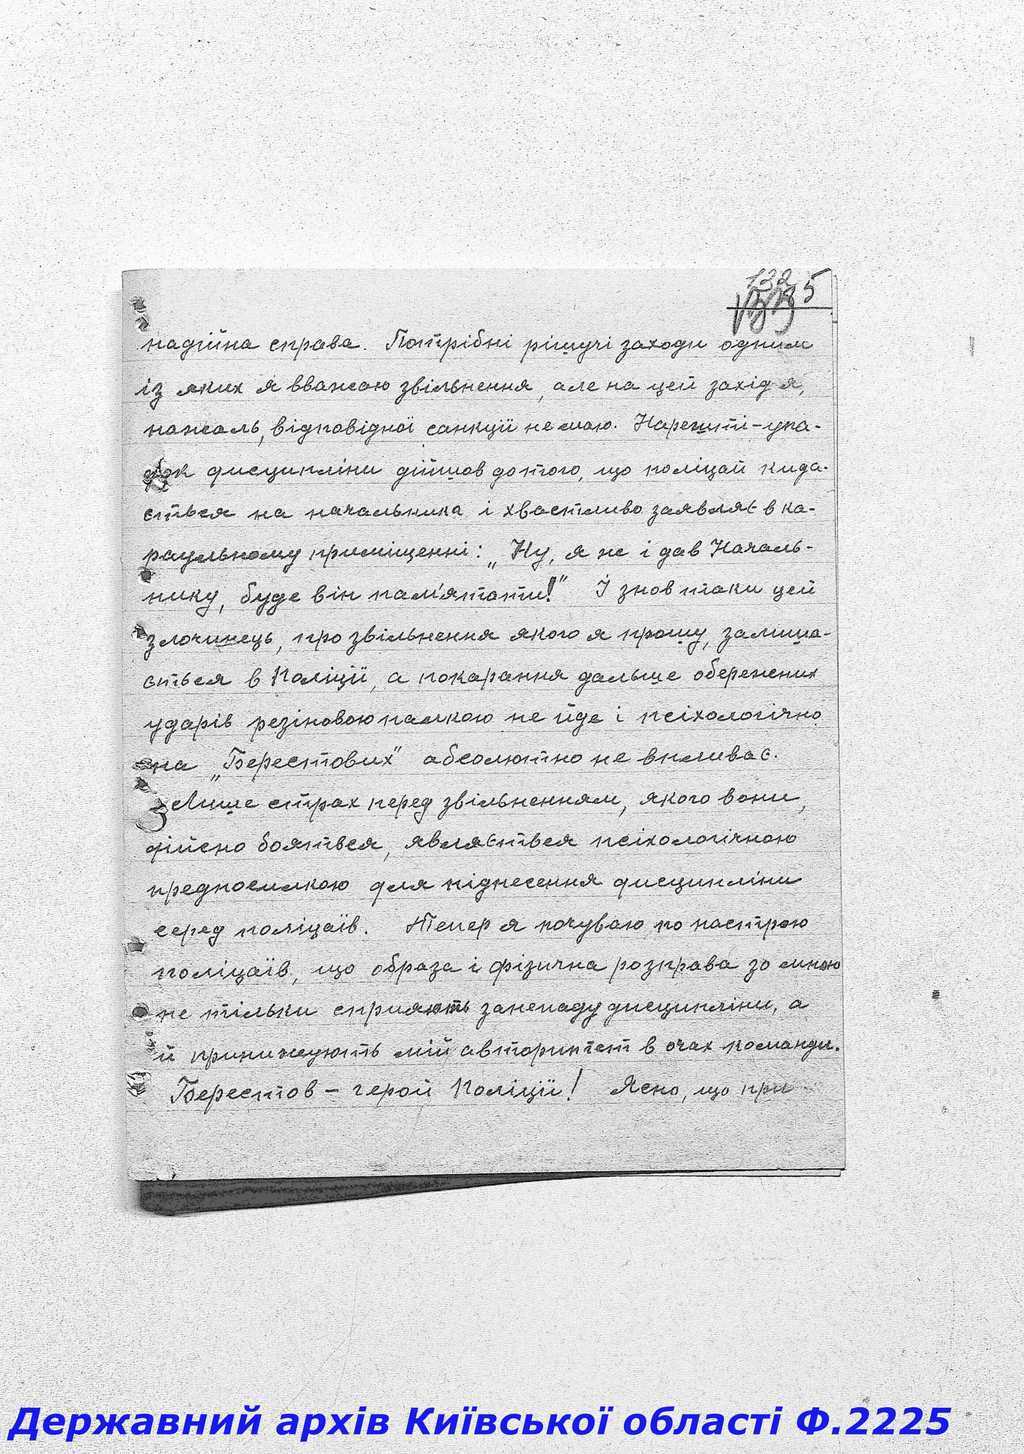 132
5
надійна справа. Потрібні рішучі заходи одним
із яких я вважаю звільнення, але на цей захід я,
нажаль, відповідної санкції не маю. Нарешті – упа-
док дисципліни дійшов до того, що поліцай кида-
ється на начальника і хвастливо заявляє в ка-
раульному приміщенні: „Ну, я же і дав Началь-
нику, буде він пам'ятати!" І знов таки цей
злочинець, про звільнення якого я прошу, залиша-
ється в Поліції, а покарання дальше обережних
ударів резіновою палкою не йде і псіхологічно
на „Берестових" абсолютно не впливає.
Лише страх перед звільненням, якого вони,
дійсно бояться, являється псіхологічною
предпосилкою для піднесення дисципліни
серед поліцаїв. Тепер я почуваю по настрою
поліцаїв, що образа і фізична розправа зо мною
не тільки сприяють занепаду дисципліни, а
й принижують мій авторитет в очах команди.
Берестов – герой Поліції! Ясно, що при
Державний архів Київської області Ф.2225